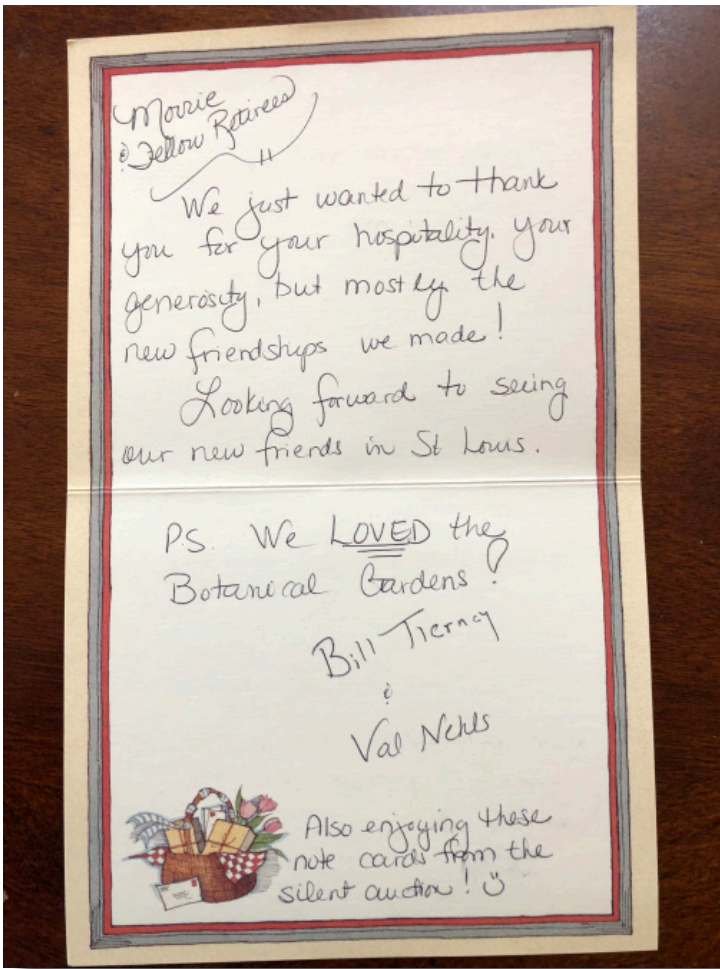 Morrie
& Fellow Retirees
We just wanted to thank
you for your hospitality, your
generosity, but mostly the
new friendships we made!
Looking forward to seeing
our new friends in St Louis.
P.S. We LOVED the
Botanical Gardens!
Bill Tierney
&
Val Nehls
Also enjoying these
note cards from the
silent auction! ☺